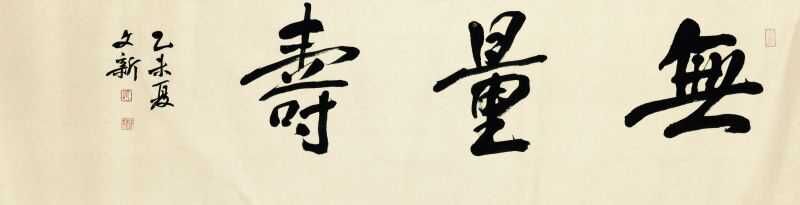 無量壽
乙未夏
文新